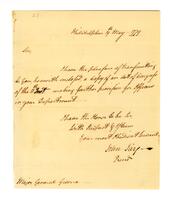 Philadelphia 9 May 1779
Sir
I have the pleasure of transmitting
to you herewith inclosed a Copy of an act of Congress
of the 5 Inst making further provision for Officers
in your Department
I have the Honor to be Sir
with Respect & Esteem
Your most Obedient Servant
John Jay
Presdt
Major General Greene